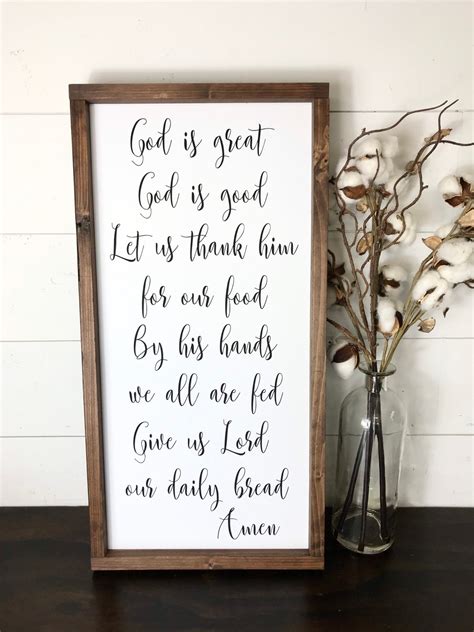 God is great
God is good
Let us thank him
for our food
By his hands
we all are fed
Give us Lord
our daily bread
Amen